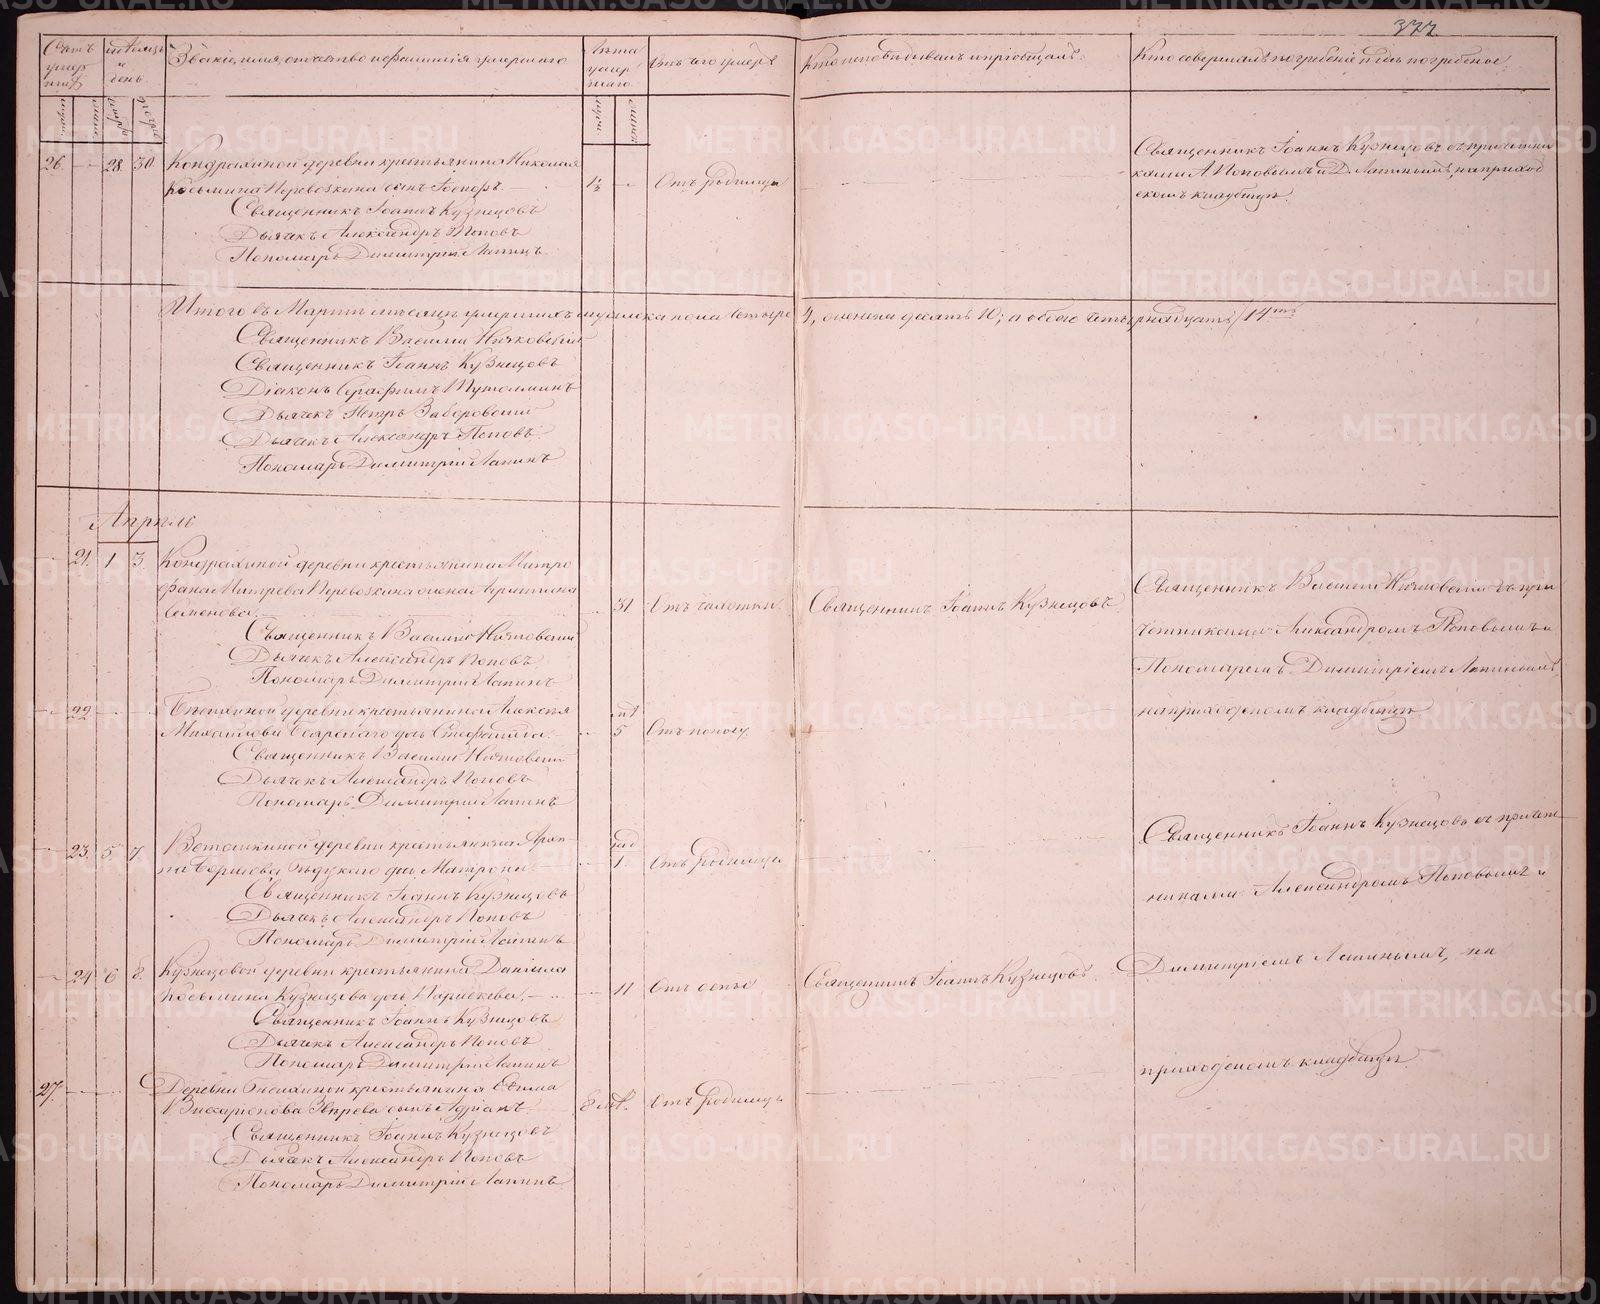 377.
Счетъ умершихъ
Мѣсяцъ и день.
Званіе, имя, отчество и фамилія умершаго
Лѣта умершаго
Отъ чего умеръ
Кто исповѣдывалъ и пріобщалъ.
Кто совершалъ погребеніе и гдѣ погребены.
26. 28. 30. Кондрахиной деревни крестьянина Николая
Козьмина Перевозкина сынъ 1/2 Отъ родимца
Священникъ Іоаннъ Кузнецовъ
Дьячекъ Александръ Поповъ
Пономарь Димитрій Лапинъ.
Священникъ Іоаннъ Кузнецовъ съ причетни
ками А. Поповымъ и Д. Лапинымъ, на приход
скомъ кладбищѣ.
Итого въ Мартѣ мѣсяцѣ умершихъ мужеска пола четыре 4, женска десять 10; а обоего четырнадцать 14ть
Священникъ Василій
Священникъ Іоаннъ Кузнецовъ
Діаконъ Серафимъ
Дьячекъ Петръ
Дьячекъ Александръ Поповъ.
Пономарь Димитрій Лапинъ
Апрѣль
21. 1 3. Кондрахиной деревни крестьянина Митро
фана Перевозкина жена
Семенова. 31 Отъ чахотки. Священникъ Іоаннъ Кузнецовъ.
Священникъ Василій
Дьячекъ Александръ Поповъ
Пономарь Димитрій Лапинъ
Священникъ Василій съ при
четниками Александромъ Поповымъ и
Пономаремъ Димитріемъ Лапинымъ,
на приходскомъ кладбищѣ
22 деревни крестьянина Алексѣя
Михайлова дочь мѣ 5 Отъ поносу
Священникъ Василій
Дьячекъ Александръ Поповъ
Пономарь Димитрій Лапинъ
23. 5. 7. деревни крестьянина
дочь Матрона. год 1. Отъ родимца
Священникъ Іоаннъ Кузнецовъ
Дьячекъ Александръ Поповъ
Пономарь Димитрій Лапинъ
Священникъ Іоаннъ Кузнецовъ съ причет
никами Александромъ Поповымъ и
Димитріемъ Лапинымъ, на
приходскомъ кладбищѣ.
24 6 8. Кузнецовой деревни крестьянина Даніила
Козьмина Кузнецова дочь Параскева. 11 Отъ оспы Священникъ Іоаннъ Кузнецовъ.
Священникъ Іоаннъ Кузнецовъ
Дьячекъ Александръ Поповъ
Пономарь Димитрій Лапинъ
27. Деревни крестьянина Ефима
Звѣрева сынъ Адріанъ. 8 мѣ. Отъ родимца
Священникъ Іоаннъ Кузнецовъ
Дьячекъ Александръ Поповъ
Пономарь Димитрій Лапинъ
METRIKI.GASO-URAL.RU